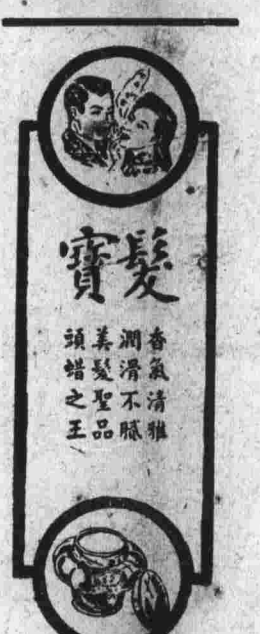 髮寶
香氣清雅
潤滑不膩
美髮聖品
頭蜡之王